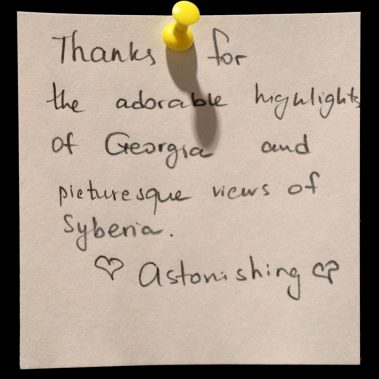 Thanks for
the adorable highlights
of Georgia and
picturesque views of
Syberia.
♡ Astonishing ♡